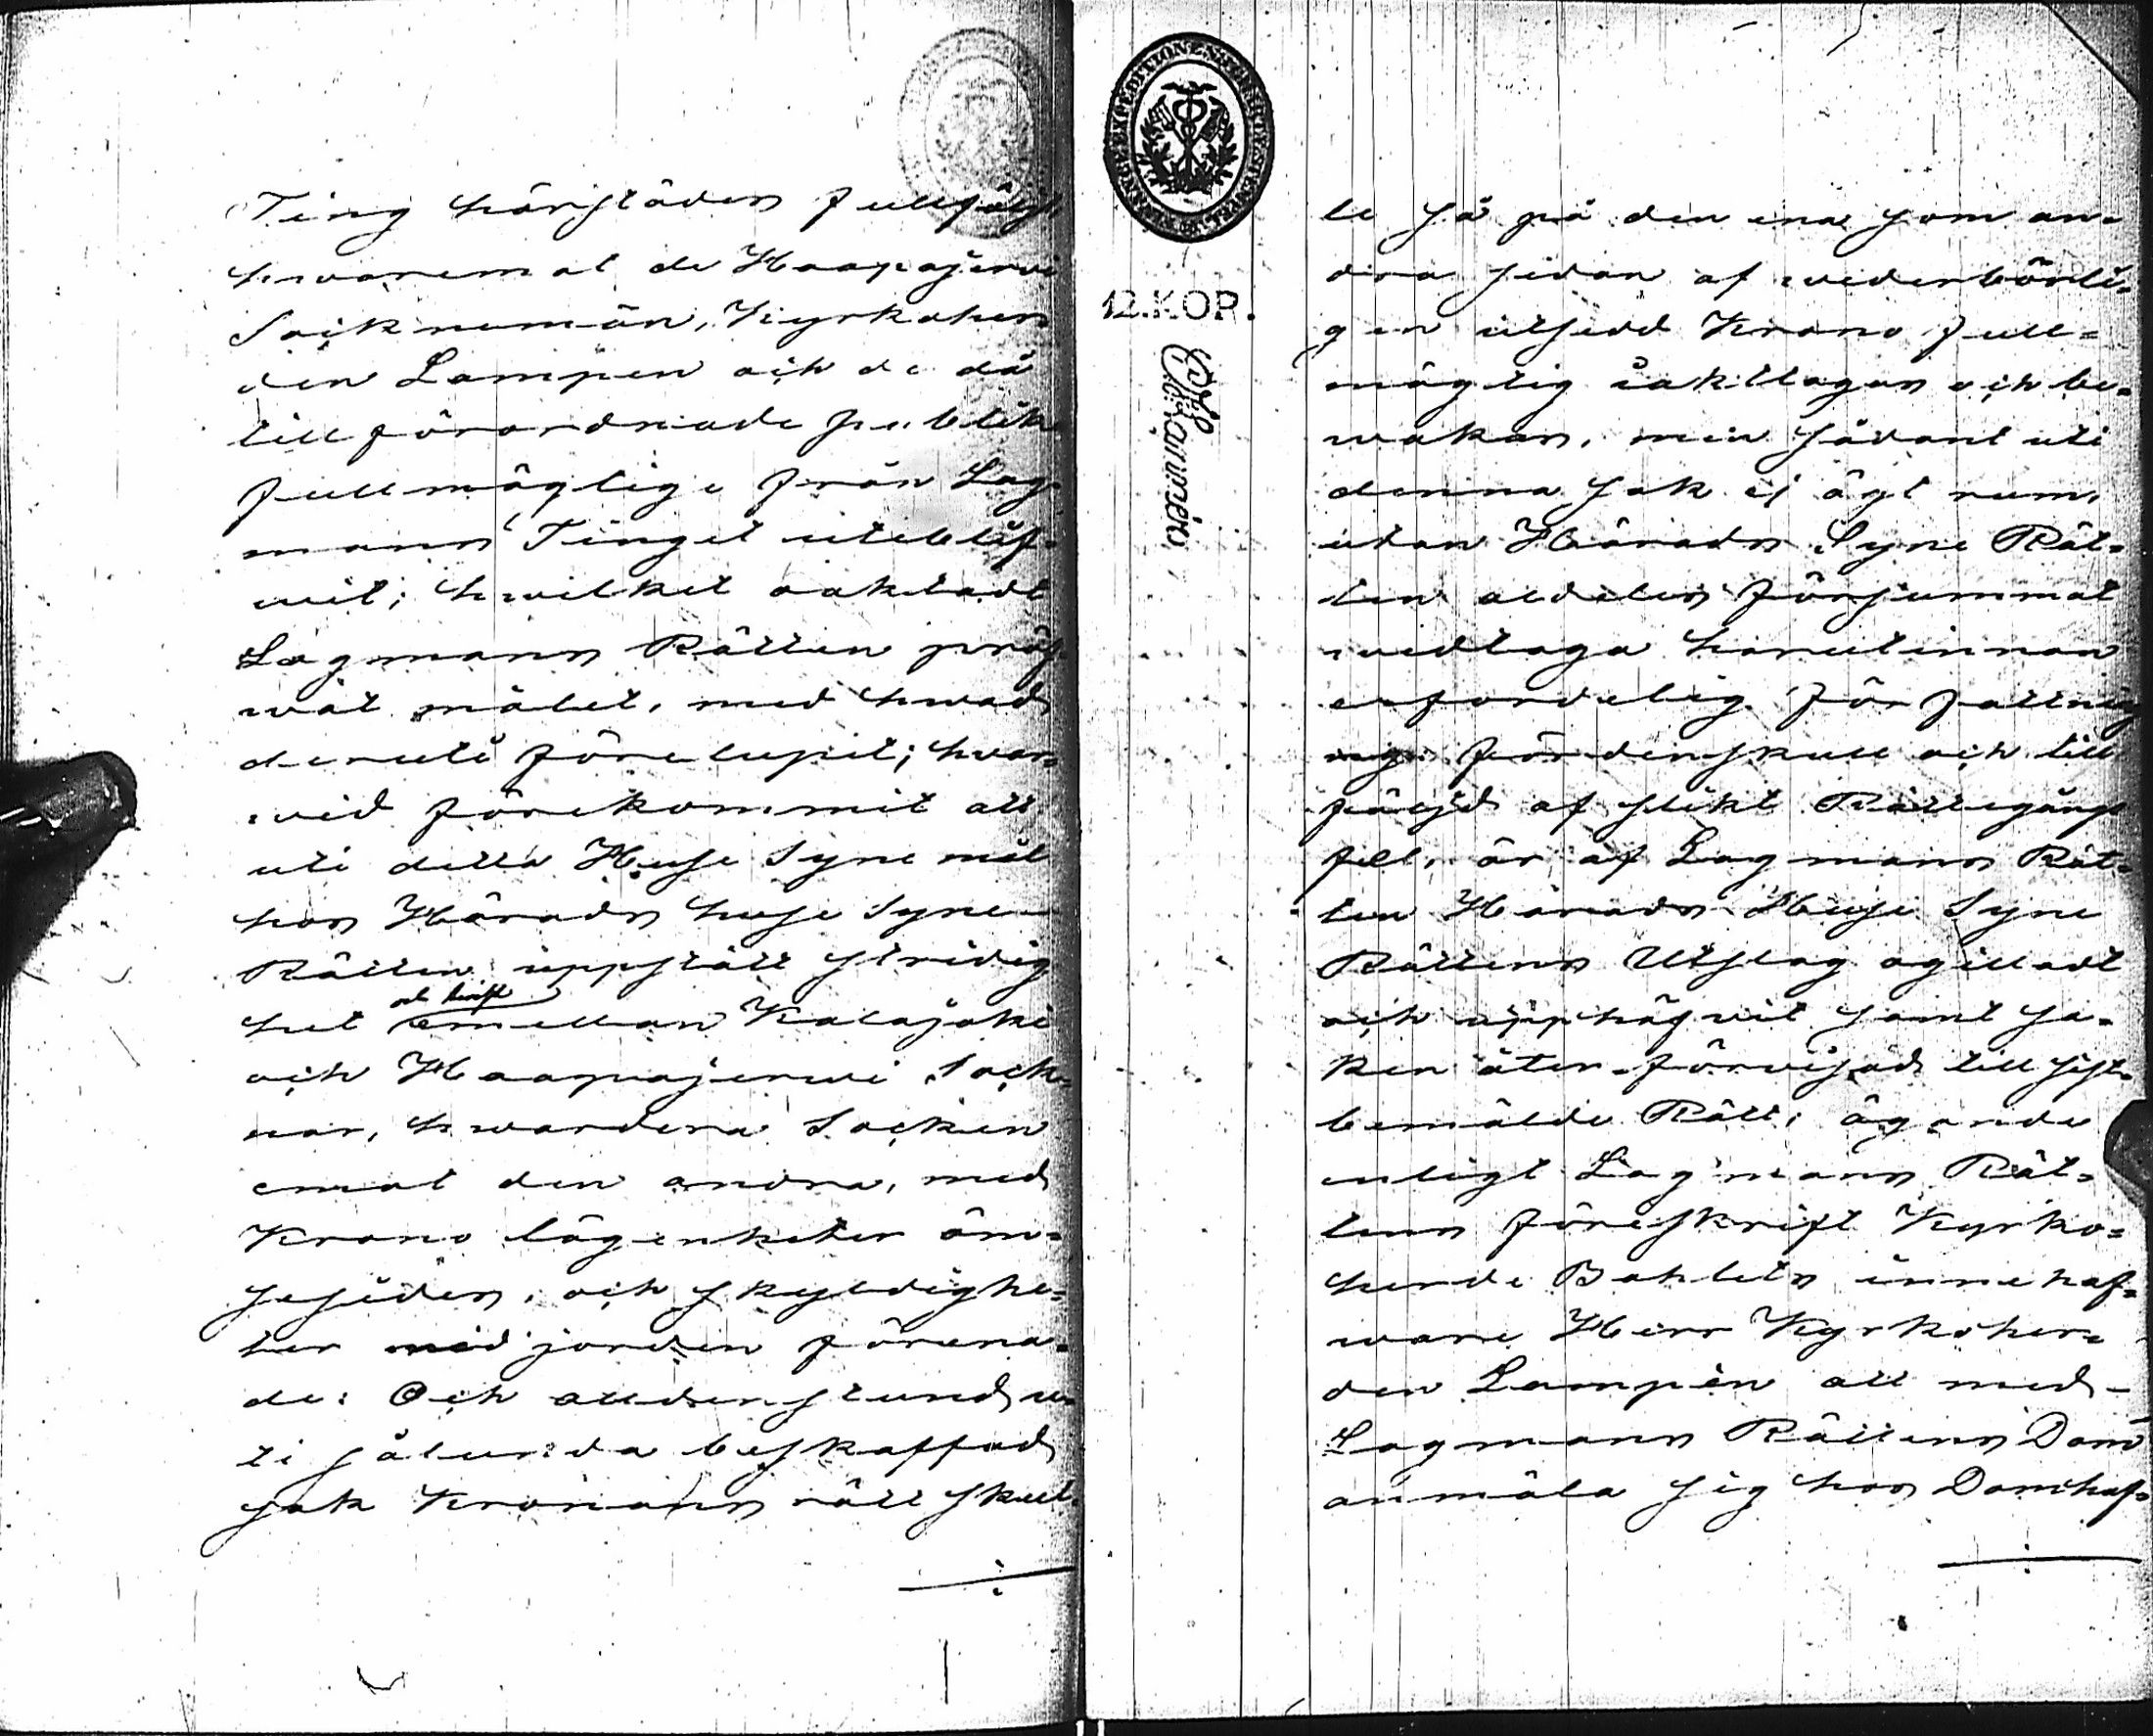 Ting härstädes fullfölgt
hvaremot de Haapajerwi
Sockneman, Kyrkoher=
den Lampen och de då
tillförordnade publike
fullmägtige från Lag=
mans Tinget uteblif=
wit; hwilket oaktadt
Lagmans Rätten pröf=
wat målet, med hwad
deruti förelupit; hvar=
wid förekommit att
uti detta Huse Syne mål
hos Härads huse Syne
Rätten uppstått stridig
het och twist emellan Kalajoki
och Haapajerwi Sock=
nar, hwardera Socken
emot den andra, med
Krono lägenheter öm=
se sider, och skyldighe=
ter med jorden förena=
de: Och alldenstund u=
ti sålunda beskaffad
sak Kronans rätt skul=
12.KOP.
le så på den ena som an=
dra sidan af wederbörli=
gen utsedd Krono full=
mägtig iakttagas och be=
wakas, men sådant uti
denna sak ej ägt rum,
utan Härads Syne Rät=
ten aldeles försummat
widtaga harutinnan
erforderlig författning
för denskull och till
följd af slikt Rättegångs
fel, är af Lagmans Rät=
ten Härads Huse Syne
Rättens Utslag ogilladt
och upphäfvit samt sa=
ken åter förvisad till sist=
bemälde Rätt; ägande
enligt Lagmans Rät=
tens föreskrift Kyrko=
herde Bohlets innehaf=
ware Herr Kyrkoher=
den Lampèn att med
Lagmans Rättens Dom
anmäla sig hos Domhaf=